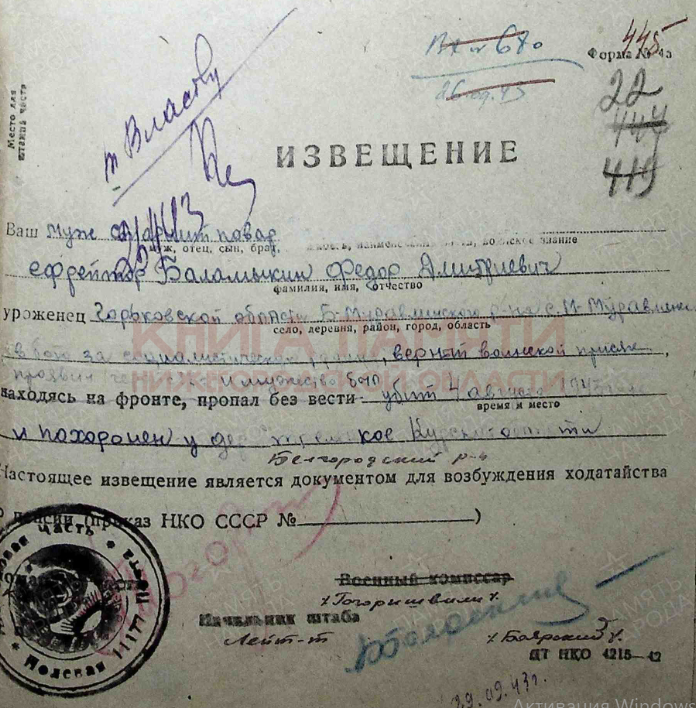 445
Вх № 670
Форма № 4а
22
444
419
Место для
штампа части
т Власову
ИЗВЕЩЕНИЕ
Ваш муж повар
муж, отец, сын, брат, воинское звание
ефрейтор Баламыкин Федор Дмитриевич
фамилия, имя, отчество
уроженец Горьковской области Б-Мурашкинский р-н с.
село, деревня, район, город, область
КНИГА ПАМЯТИ
НИЖЕГОРОДСКОЙ ОБЛАСТИ
в бою за социалистическую родину, верный воинской присяге,
и мужество был
находясь на фронте, пропал без вести убит 4 августа 1943
время и место
и похоронен у дер. Курской области
Белгородский р-н
Настоящее извещение является документом для возбуждения ходатайства
о пенсии (приказ НКО СССР № )
Военный комиссар
Начальник штаба
Лейт-т
/Боярский/
ДТ НКО 4215—42
Полевая
часть
29.09.43г.
ПАМЯТЬ
НАРОДА
Активация Windows